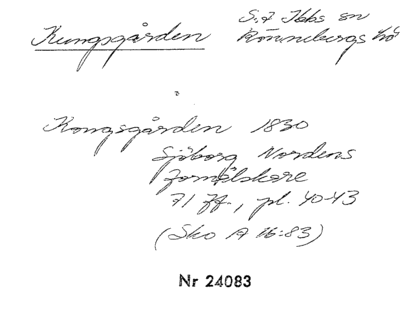 Kungsgården
S:t Ibbs sn
Rönnebergs hd
Kongsgården 1830
Sjöborg Nordens
fornälskare
71 ff., pl. 40-43
(Sko A 16:83)
Nr 24083